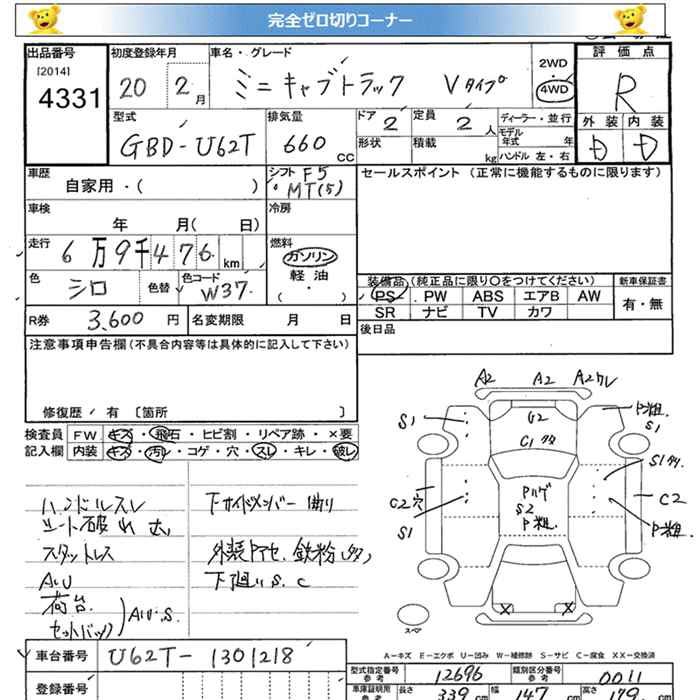 完全ゼロ切りコーナー
出品番号 初度登録年月 車名・グレード 2WD 評価点
[2014] 4331 20 2月 ミニキャブトラック Vタイプ 4WD R
型式 排気量 ドア 定員 ディーラー・並行 外装 内装
GBD-U62T 660 CC 2 2人 モデル年式 年 D D
形状 積載 kg ハンドル 左・右
車歴 シフト F5 セールスポイント (正常に機能するものに限ります)
自家用・( ) MT(5)
車検 冷房
年 月( 日)
走行 燃料
6万9千476km ガソリン
色 色替 色コード 軽油 装備品 (純正品に限り〇をつけてください) 新車保証書
シロ W37 ( ・ ) PS PW ABS エアB AW 有・無
SR ナビ TV カワ
R券 3,600円 名変期限 月 日 後日品
注意事項申告欄(不具合内容等は具体的に記入して下さい)
修復歴/有 〔箇所 〕
検査員 FW キズ・飛石・ヒビ割・リペア跡・×要
記入欄 内装 キズ・汚レ・コゲ・穴・スレ・キレ・破レ
ハンドルスレ 下サイドメンバー曲り
シート破れ大
スタットレス 外装Pアセ,鉄粉(多)
AU 下廻りS.C
荷台
セットバック AU.S.
A2 A2 A2ワレ
S1 U2 P粗 S1
C1
S1
C2穴 Pハゲ S2 P粗 C2
S1 P粗
X X
スペア
A-キズ E-エクボ U-凹み W-補修跡 S-サビ C-腐食 XX-交換済
車台番号 U62T-1301218 型式指定番号 参考 12696 類別区分番号 参考 0011
登録番号 車庫証明用 参考 長さ 339cm 幅 147cm 高さ 179cm